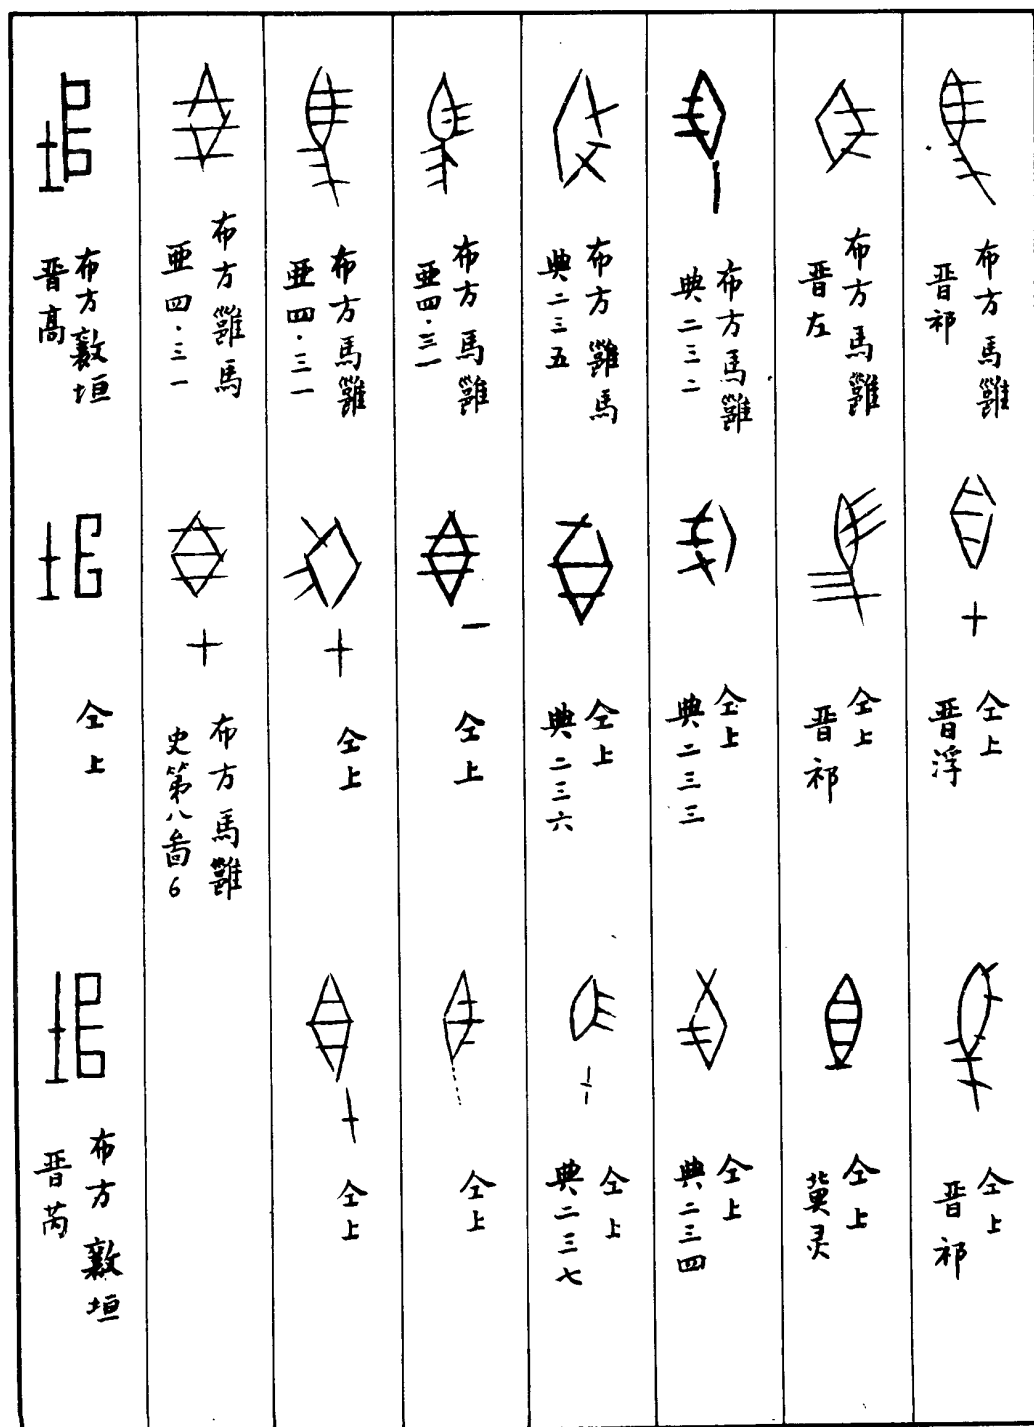 布方馬雝
晋祁
仝上
晋浮
仝上
晋祁
布方馬雝
晋左
仝上
晋祁
仝上
冀灵
布方馬雝
典二三二
仝上
典二三三
仝上
典二三四
布方雝馬
典二三五
仝上
典二三六
仝上
典二三七
布方馬雝
亜四·三一
仝上
仝上
布方馬雝
亜四·三一
仝上
仝上
布方雝馬
亜四·三一
布方馬雝
史第八啚6
布方垣
晋高
仝上
布方垣
晋芮